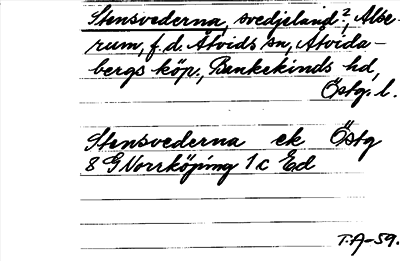 Stensvederna, svedjeland?, Albe-
rum, f.d. Åtvids sn, Åtvida-
bergs köp., Bankekinds hd,
Östg. l.
Stensvederna ek Östg
8 G Norrköping 1c Ed
T.A-59.